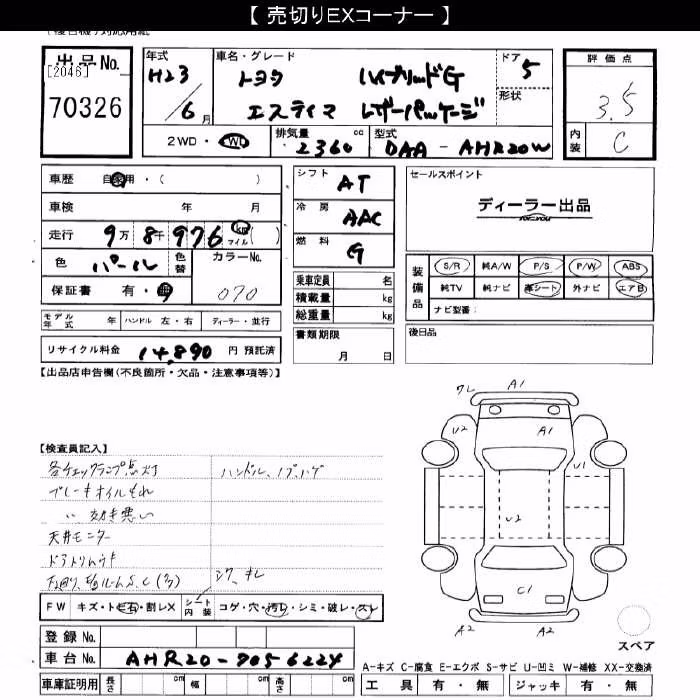 【 売切りEXコーナー 】
出品No.
[2046]
70326
年式
H23/6月
車名・グレード
トヨタ ハイブリッドG
エスティマ レザーパッケージ
ドア
5
形状
評価点
3.5
内装
C
2WD・4WD
排気量 2360 cc
型式 DAA-AHR20W
車歴 自家用・( )
車検 年 月
走行 9万8千976 km マイル( )
色 パール 色替
カラーNo.
070
保証書 有・無
シフト AT
冷房 AAC
燃料 G
乗車定員 名
積載量 kg
総重量 kg
セールスポイント
ディーラー出品
装備品
S/R 純A/W P/S P/W ABS
純TV 純ナビ 革シート 外ナビ エアB
ナビ型番:
モデル年式 年 ハンドル 左・右 ディーラー・並行
リサイクル料金 14,890 円 預託済
書類期限
月 日
後日品
【出品店申告欄(不良箇所・欠品・注意事項等)】
ワレ A1
U2 A1
U1
U2
C1
A2 A2
【検査員記入】
各チェックランプ点灯 ハンドル、ノブハゲ
ブレーキオイルもれ
〃 効き悪い
天井モニター
ドアトリムウキ
シワ、キレ
FW キズ・トビ石・割レX
シート内装 コゲ・穴・汚レ・シミ・破レ・スレ
スペア
登録No.
車台No. AHR20-7056224
A-キズ C-腐食 E-エクボ S-サビ U-凹ミ W-補修 XX-交換済
車庫証明用 長さ cm 幅 cm 高さ cm
工具 有・無 ジャッキ 有・無